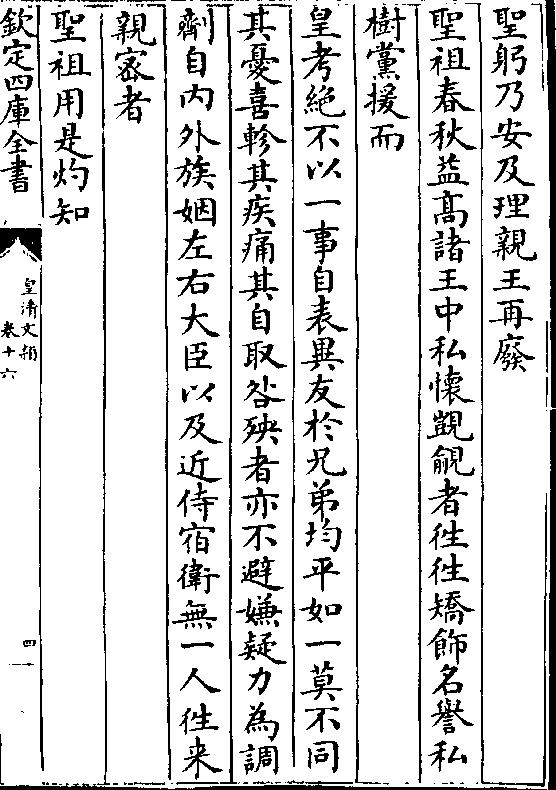 聖躬乃安及理親王再廢
聖祖春秋益髙諸王中私懷覬覦者徃徃矯飾名譽私
樹黨援而
皇考絶不以一事自表異友於兄弟均平如一莫不同
其憂喜軫其疾痛其自取咎殃者亦不避嫌疑力為調
劑自内外族姻左右大臣以及近侍宿衛無一人徃来
親宻者
聖祖用是灼知
欽定四庫全書
皇清文頴
卷十六
四一